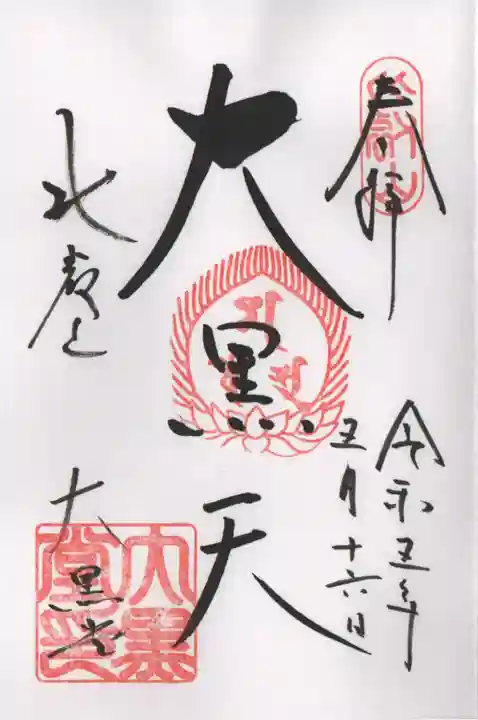 奉拝
令和五年
五月十六日
大黒天
比叡山
大黒堂
大黒
堂印